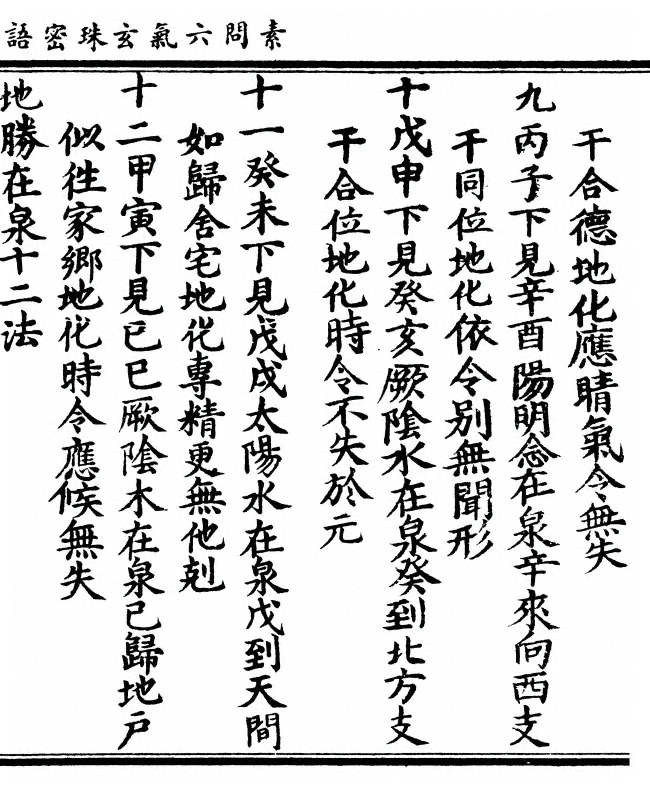 素問六氣玄珠密語
干合德地化應睛氣令無失
九丙子下見辛酉陽明念在泉辛來向西支
干同位地化依令别無聞形
十戊申下見癸亥厥陰水在泉癸到北方支
干合位地化時令不失於元
十一癸未下見戊戌太陽水在泉戊到天間
如歸舍宅地化專精更無他剋
十二甲寅下見已巳厥陰木在泉已歸地户
似徃家鄉地化時令應候無失
地勝在泉十二法